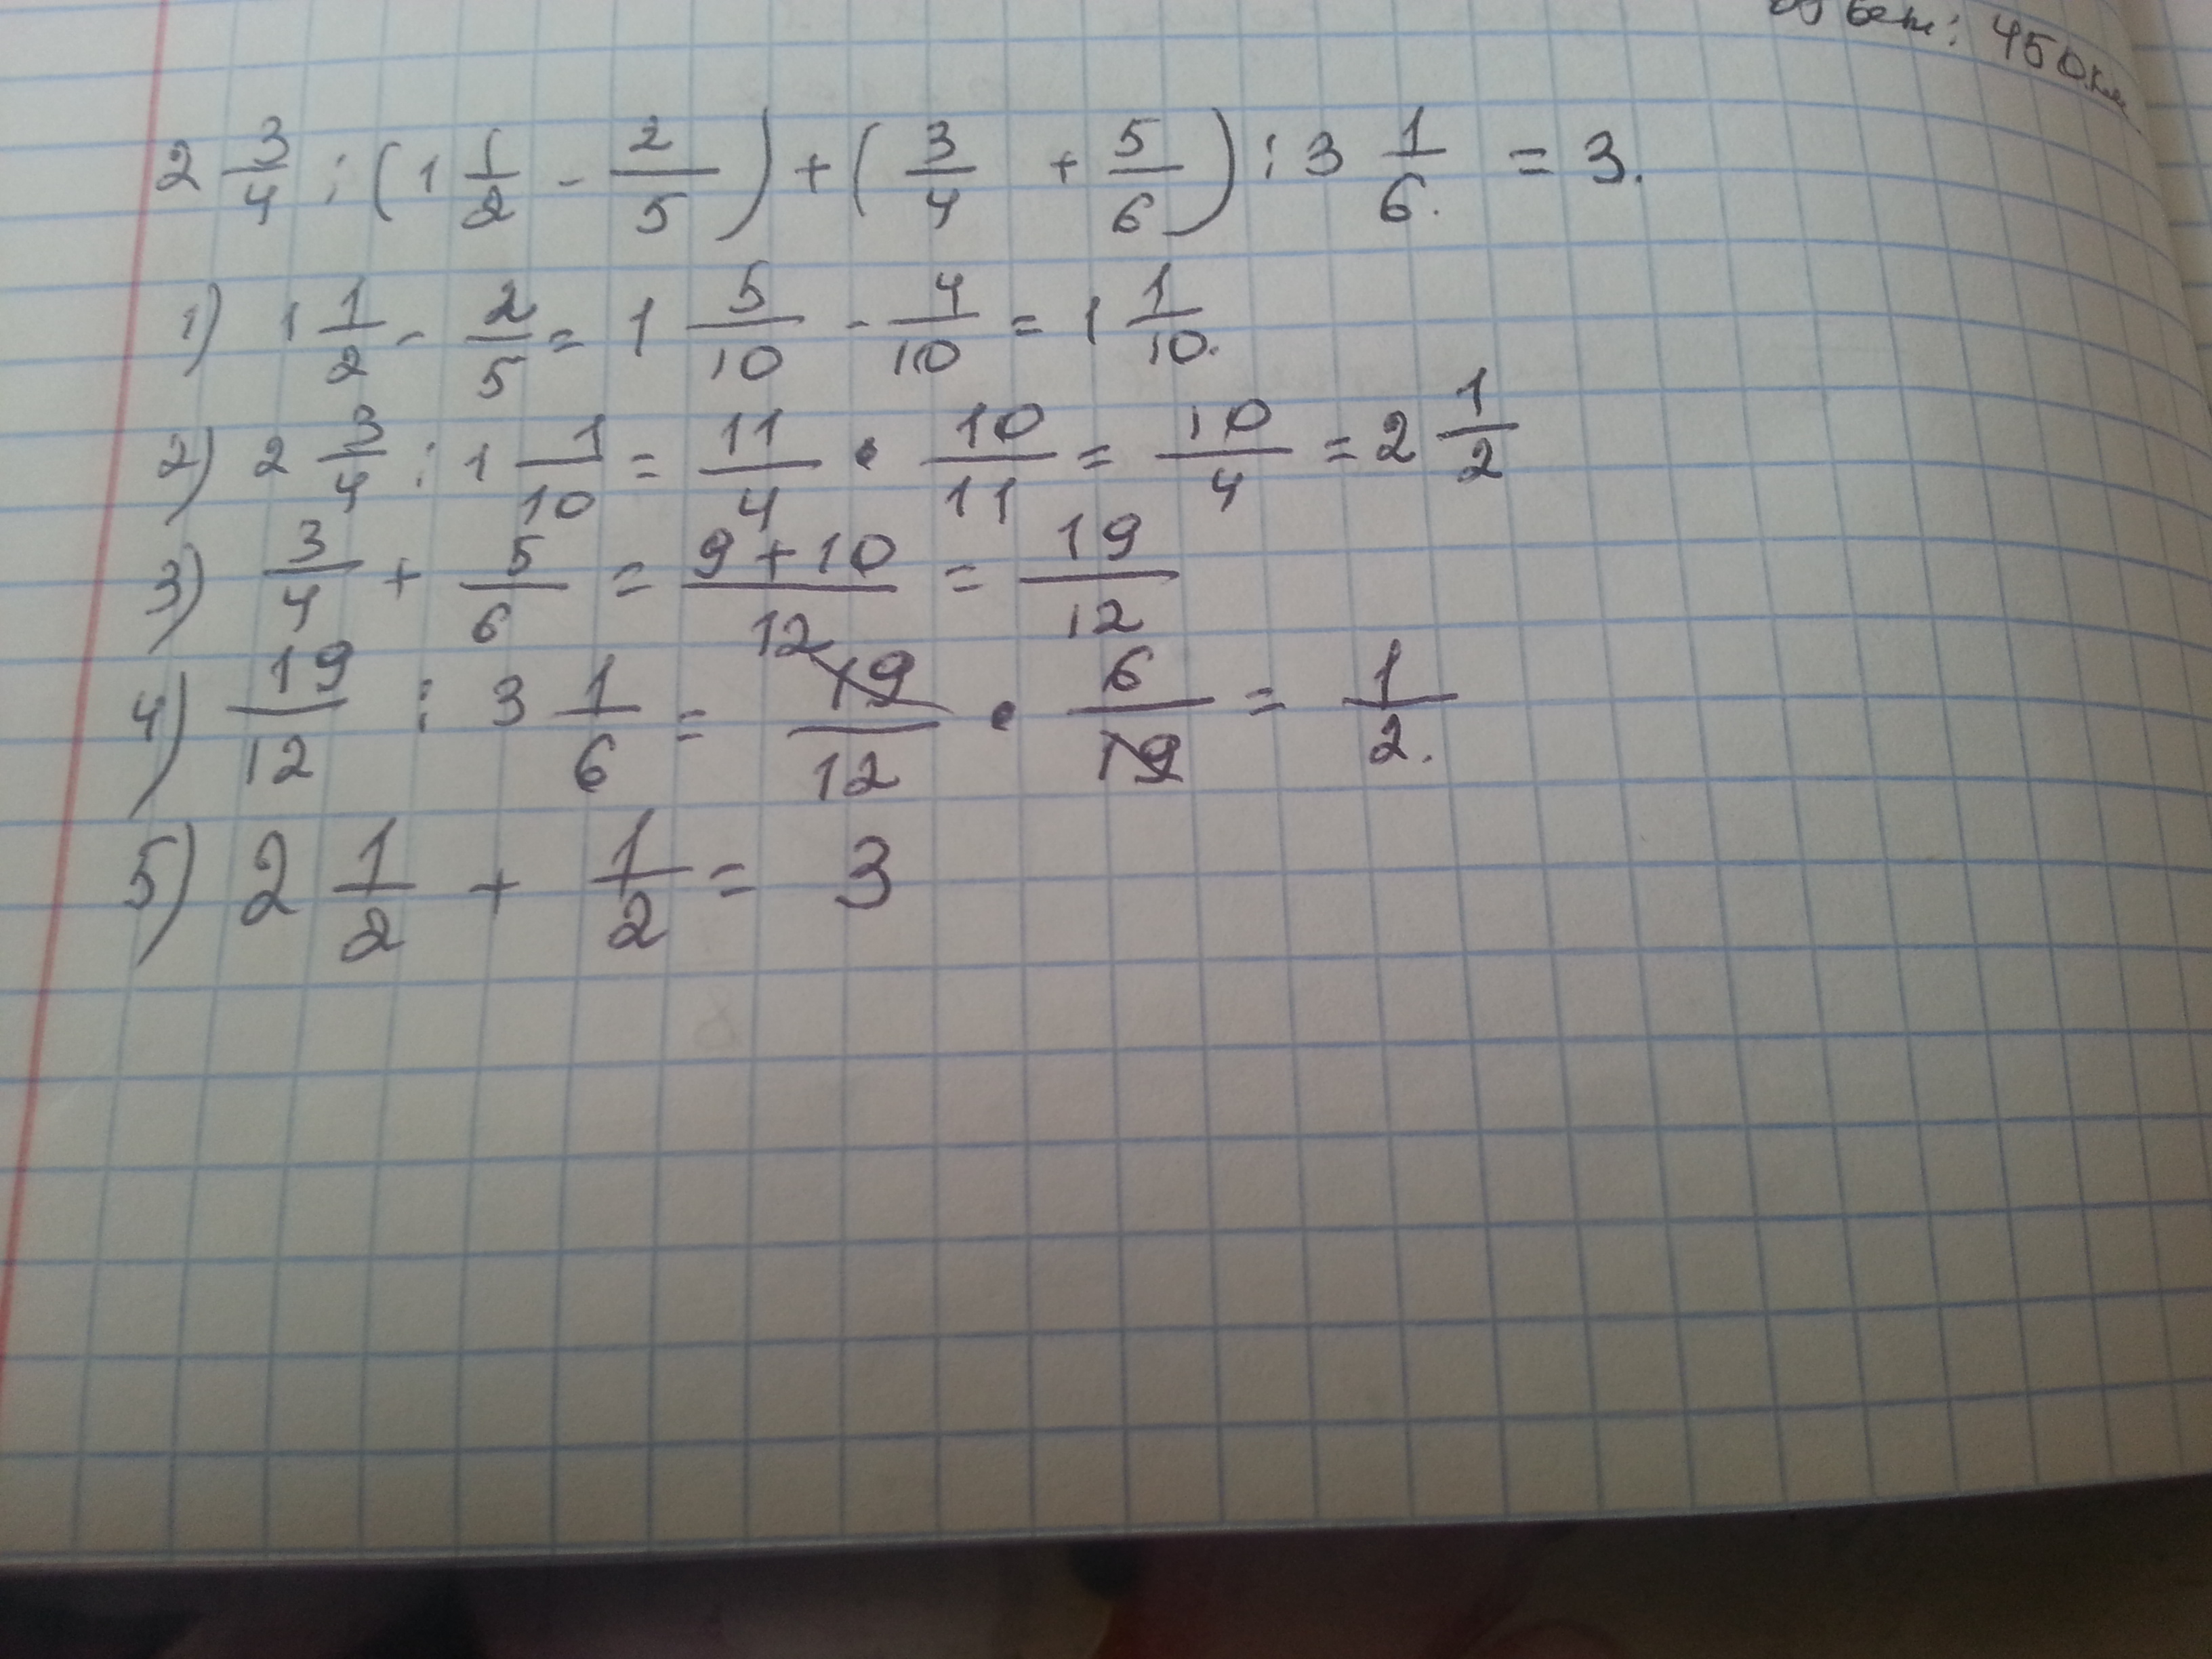 Ответ: 450км
2 3/4 : (1 1/2 - 2/5) + (3/4 + 5/6) : 3 1/6. = 3.
1) 1 1/2 - 2/5 = 1 5/10 - 4/10 = 1 1/10.
2) 2 3/4 : 1 1/10 = 11/4 • 10/11 = 10/4 = 2 1/2
3) 3/4 + 5/6 = (9+10)/12 = 19/12
4) 19/12 : 3 1/6 = 19/12 • 6/19 = 1/2.
5) 2 1/2 + 1/2 = 3